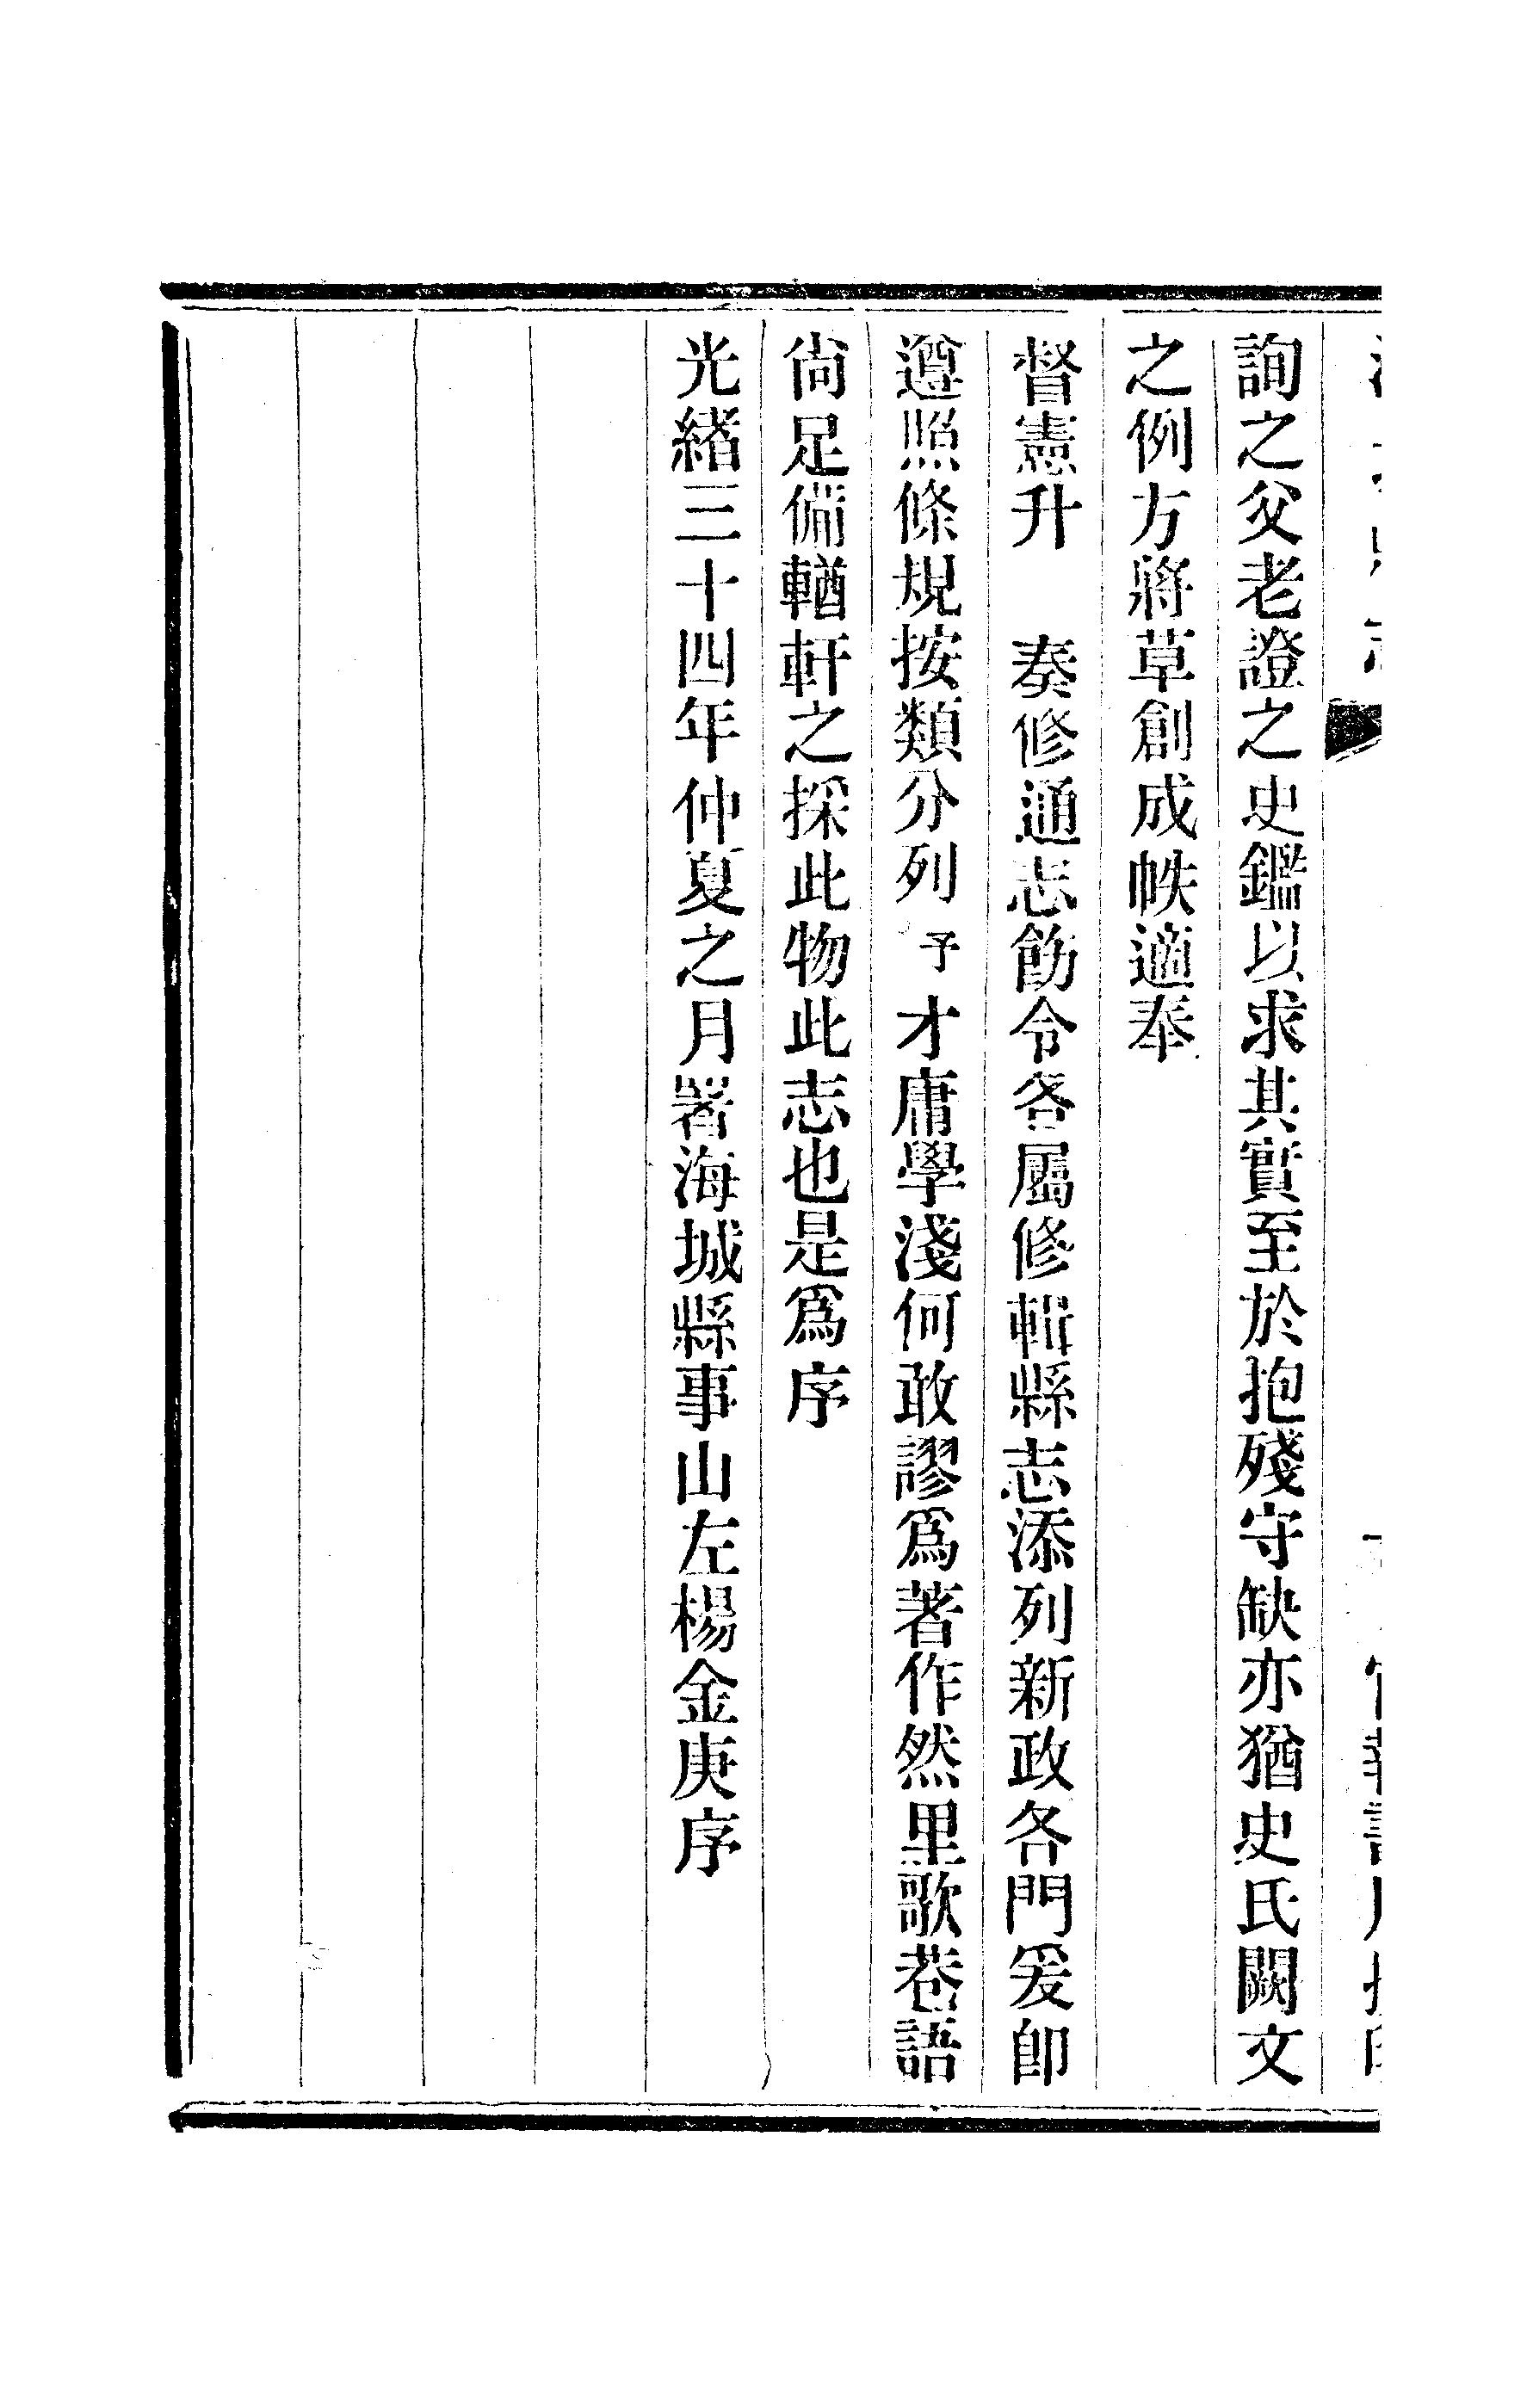 詢之父老證之史鑑以求其實至於抱殘守缺亦猶史氏闕文
之例方將草創成帙適奉
督憲升　奏修通志飭令各屬修輯縣志添列新政各門爰卽
遵照條規按類分列予才庸學淺何敢謬爲著作然里歌巷語
尙足備輶軒之採此物此志也是爲序
光緒三十四年仲夏之月署海城縣事山左楊金庚序